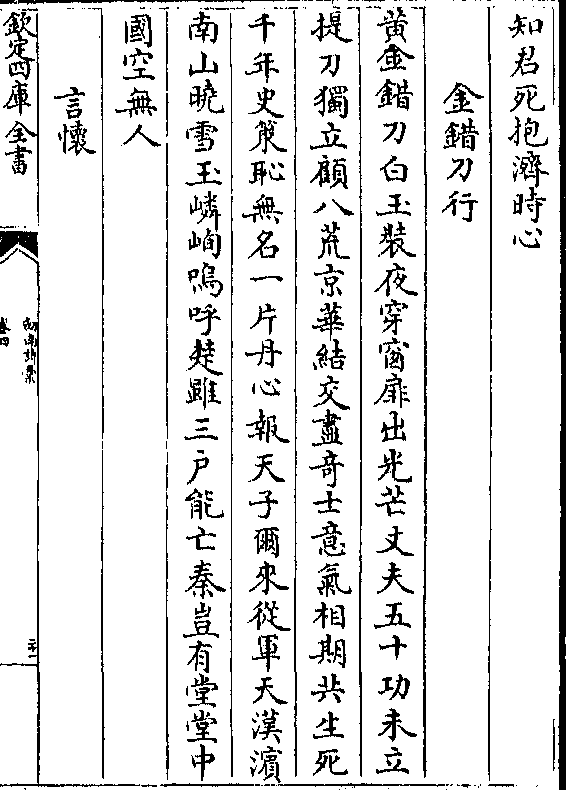 知君死抱濟時心
金錯刀行
黃金錯刀白玉裝夜穿窗扉出光芒丈夫五十功未立
提刀獨立顧八荒京華結交盡奇士意氣相期共生死
千年史策恥無名一片丹心報天子爾來從軍天漢濱
南山曉雪玉嶙峋嗚呼楚雖三戶能亡秦豈有堂堂中
國空無人
言懷
欽定四庫全書
劍南詩稾
卷四